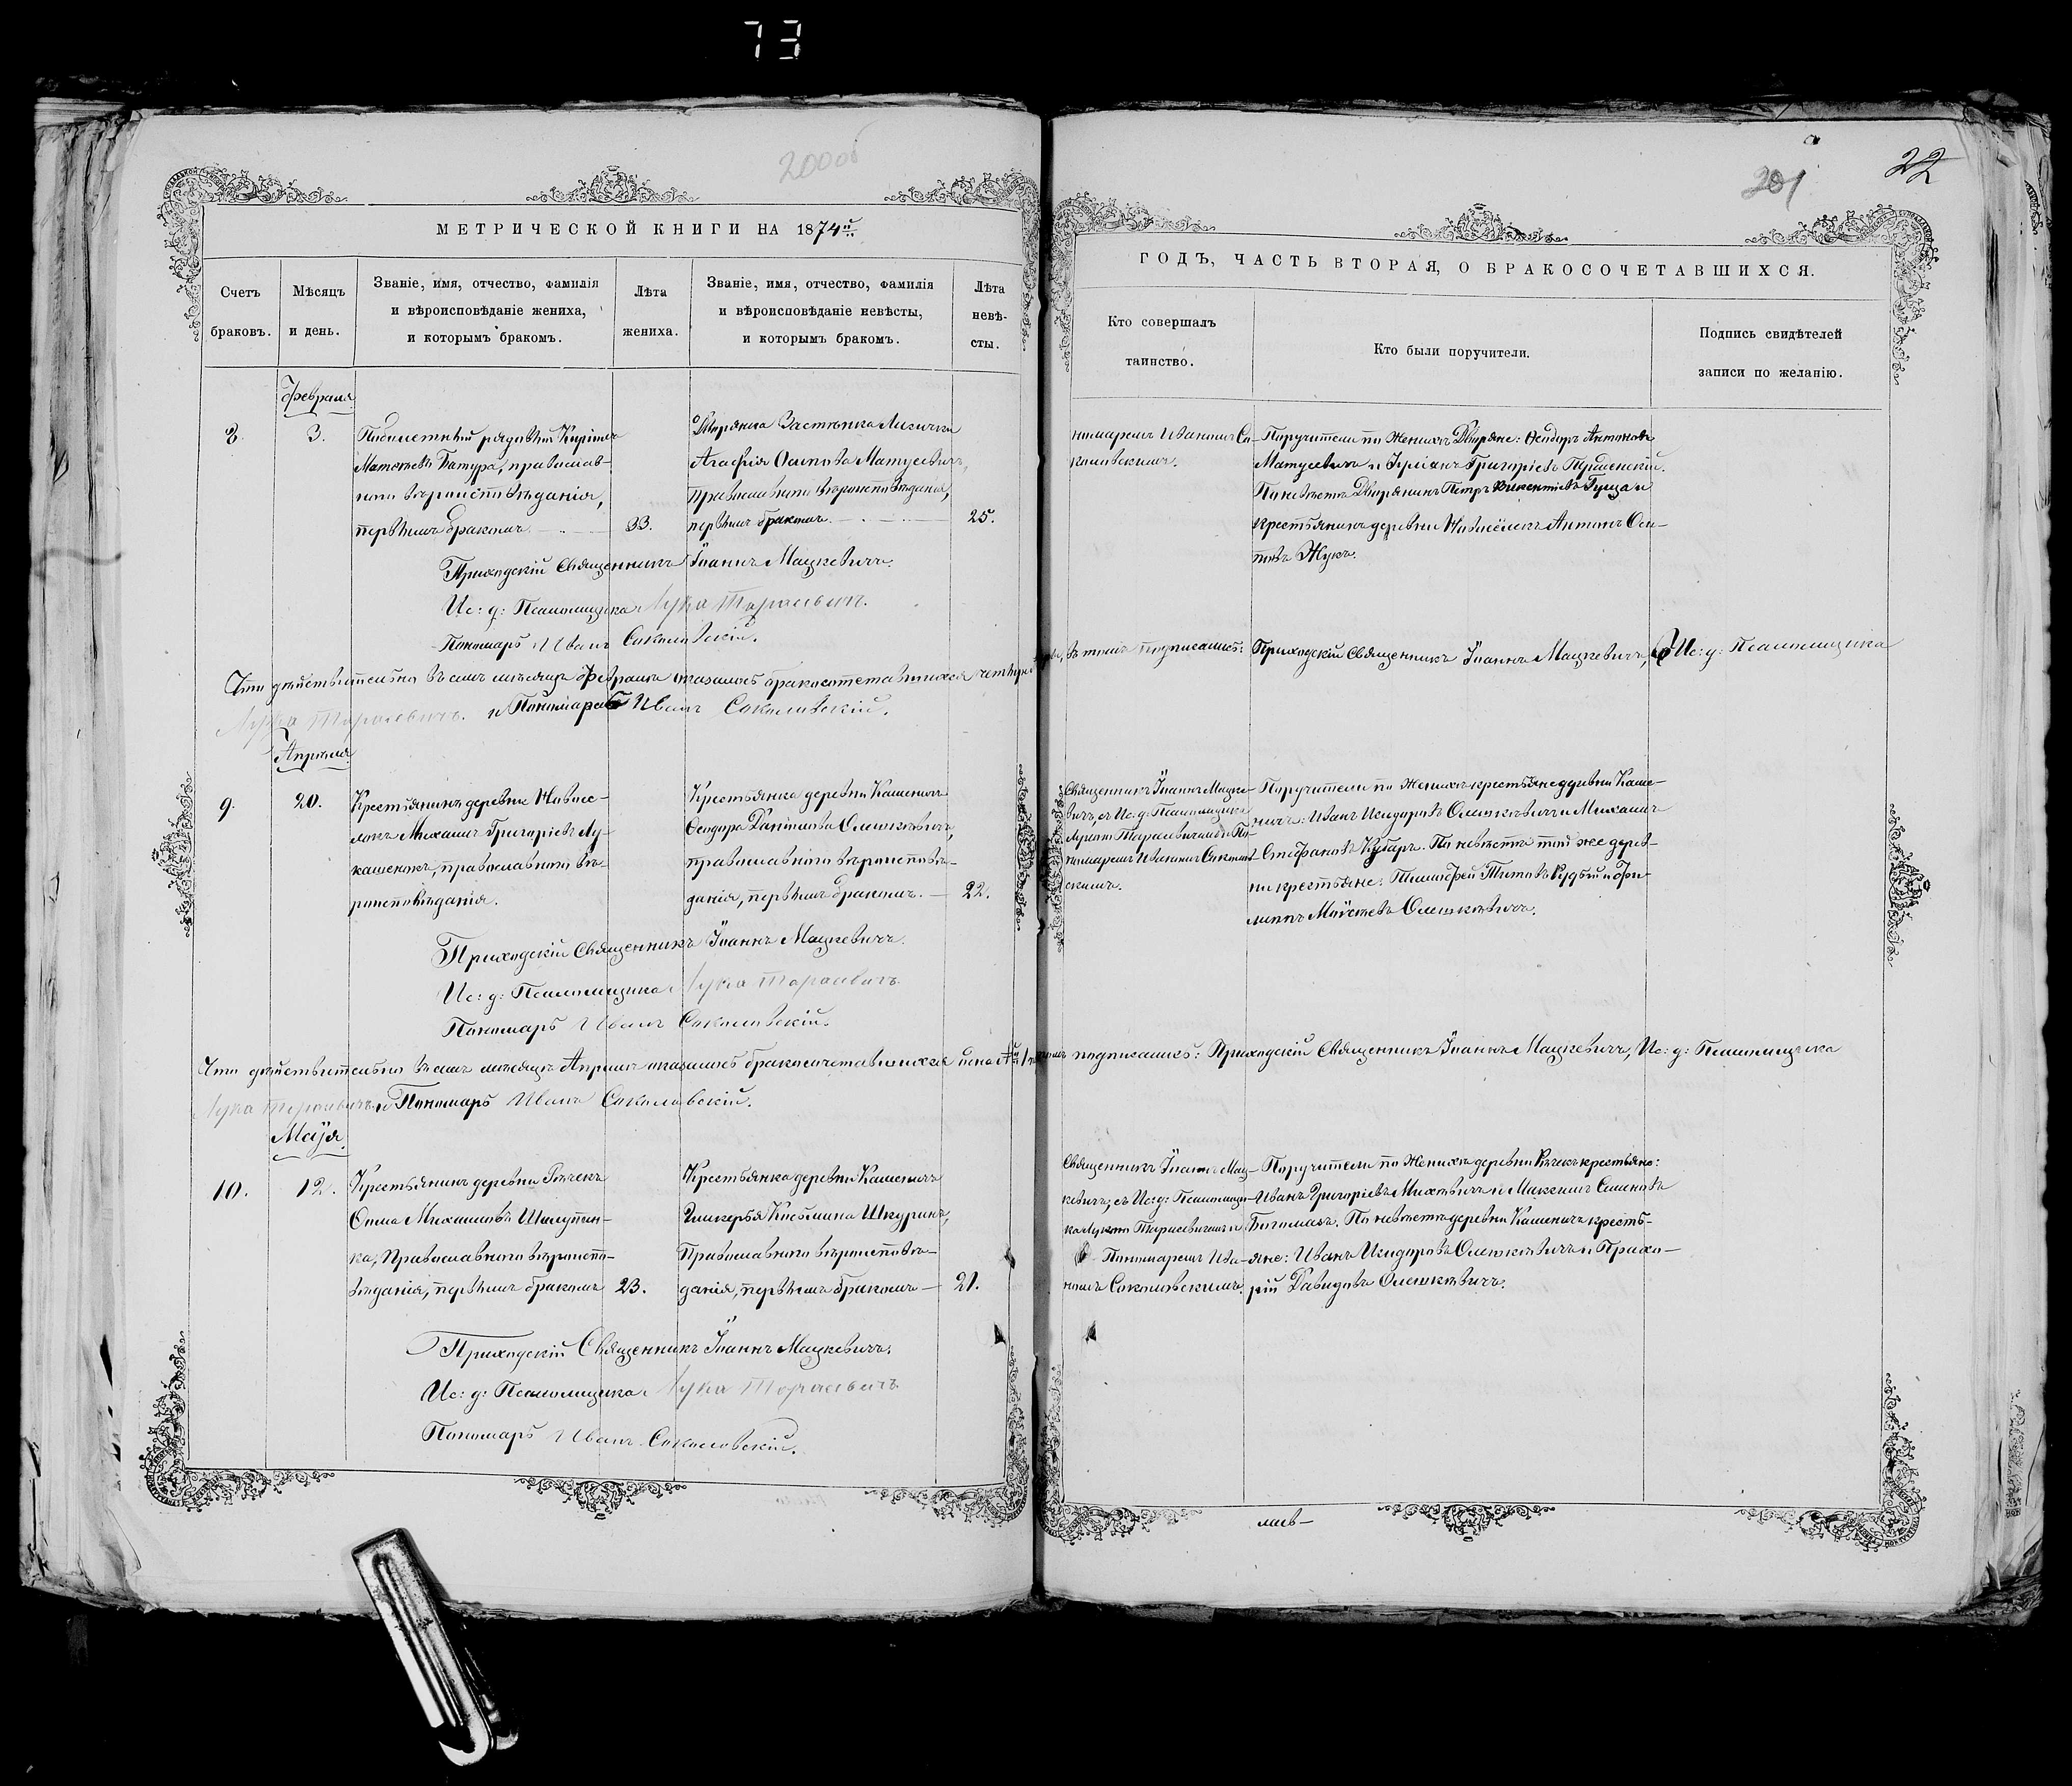 73
200об
МЕТРИЧЕСКОЙ КНИГИ НА 1874й
Счетъ браковъ.
Мѣсяцъ и день.
Званіе, имя, отчество, фамилія
и вѣроисповѣданіе жениха,
и которымъ бракомъ.
Лѣта жениха.
Званіе, имя, отчество, фамилія
и вѣроисповѣданіе невѣсты,
и которымъ бракомъ.
Лѣта невѣ-
сты.
Февраля
8.
3.
рядовый
Матѳѣевъ Батура, православ-
наго вѣроисповѣданія,
первымъ бракомъ.
33.
Дворянка Застѣнка
Агафія Осипова Матусевичъ,
Православнаго вѣроисповѣданія,
первымъ бракомъ.
25.
Приходскій Священникъ Іоаннъ Мацкевичъ.
Ис: д: Псаломщика Лука Тарасевичъ.
Пономарь Иванъ Соколовскій.
Что дѣйствительно въ семъ мѣсяцѣ Февралѣ оказалось бракосочетавшихся четыре
Лука Тарасевичъ. и Пономарь Иванъ Соколовскій.
Апрѣля
9.
20.
Крестьянинъ деревни Новосе-
локъ Михаилъ Григорьевъ Лу-
кашенокъ, православнаго вѣ-
роисповѣданія.
Крестьянка деревни Кашеничъ
Ѳеодора Данилова Олешкѣвичъ,
православнаго вѣроисповѣ-
данія, первымъ бракомъ.
22.
Приходскій Священникъ Іоаннъ Мацкевичъ.
Ис: д: Псаломщика Лука Тарасевичъ
Пономарь Иванъ Соколовскій.
Что дѣйствительно въ семъ мѣсяцѣ Апрѣлѣ оказалось бракосочетавшихся
Лука Тарасевичъ и Пономарь Иванъ Соколовскій.
Маія
10.
12.
Крестьянинъ деревни Рѣчекъ
Ѳома Михаиловъ
ка, Православнаго вѣроиспо-
вѣданія, первымъ бракомъ
23.
Крестьянка деревни Кашеничъ
Гликерья Косьмина Шкуринъ,
Православнаго вѣроисповѣ-
данія, первымъ бракомъ
21.
Приходскій Священникъ Іоаннъ Мацкевичъ.
Ис: д: Псаломщика Лука Тарасевичъ
Пономарь Иванъ Соколовскій.
201
22
ГОДЪ, ЧАСТЬ ВТОРАЯ, О БРАКОСОЧЕТАВШИХСЯ.
Кто совершалъ
таинство.
Кто были поручители.
Подпись свидѣтелей
записи по желанію.
номаремъ Иваномъ Со-
коловскимъ.
Поручители по Женихѣ Дворяне: Ѳеодоръ Антоновъ
Матусевичъ и Григорьевъ
По невѣстѣ Дворянинъ Петръ Викентіевъ Гуща и
крестьянинъ деревни Новосёлекъ Антонъ Оси-
повъ Жукъ.
въ томъ подписались: Приходскій Священникъ Іоаннъ Мацкевичъ, Ис: д: Псаломщика
Священникъ Іоаннъ Мацке-
вичъ, съ Ис: д: Псаломщика
Лукою Тарасевичемъ и По-
номаремъ Иваномъ Соколов-
скимъ.
Поручители по Женихѣ крестьяне деревни Каше-
ничъ: Иванъ Исидоровъ Олешкѣвичъ и Михаилъ
Стефановъ Кухаръ. По невѣстѣ той же дерев-
ни крестьяне: Тимофей Титовъ Рудый и Фи-
липпъ Моисеевъ Олешкѣвичъ.
подписались: Приходскій Священникъ Іоаннъ Мацкевичъ, Ис: д: Псаломщика
Священникъ Іоаннъ Мац-
кевичъ, съ Ис: д: Псаломщи-
ка Лукою Тарасевичемъ и
Пономаремъ Ива-
номъ Соколовскимъ.
Поручители по Женихѣ деревни Рѣчекъ крестьяне:
Иванъ Григорьевъ Михѣвичъ и Максимъ Семеновъ
Богомазъ. По невѣстѣ деревни Кашеничъ кресть-
яне: Иванъ Исидоровъ Олешкѣвичъ и Григо-
рій Давидовъ Олешкѣвичъ.